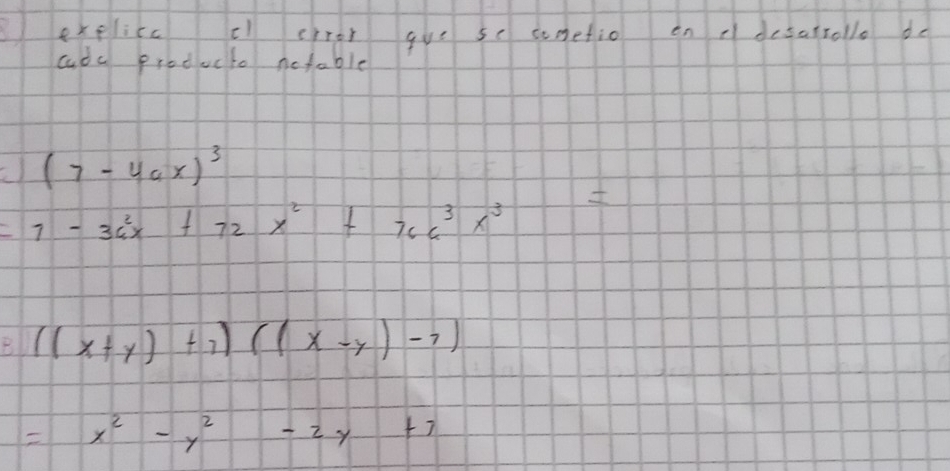 explica el error que se cometio en el desarrollo de
cada producto notable
(7 - 4ax)³
= 7 - 3a²x + 72 x² + 7 a³ x³ =
B ((x+y) + 7) ((x-y) - 7)
= x² - y² - 2y + 7